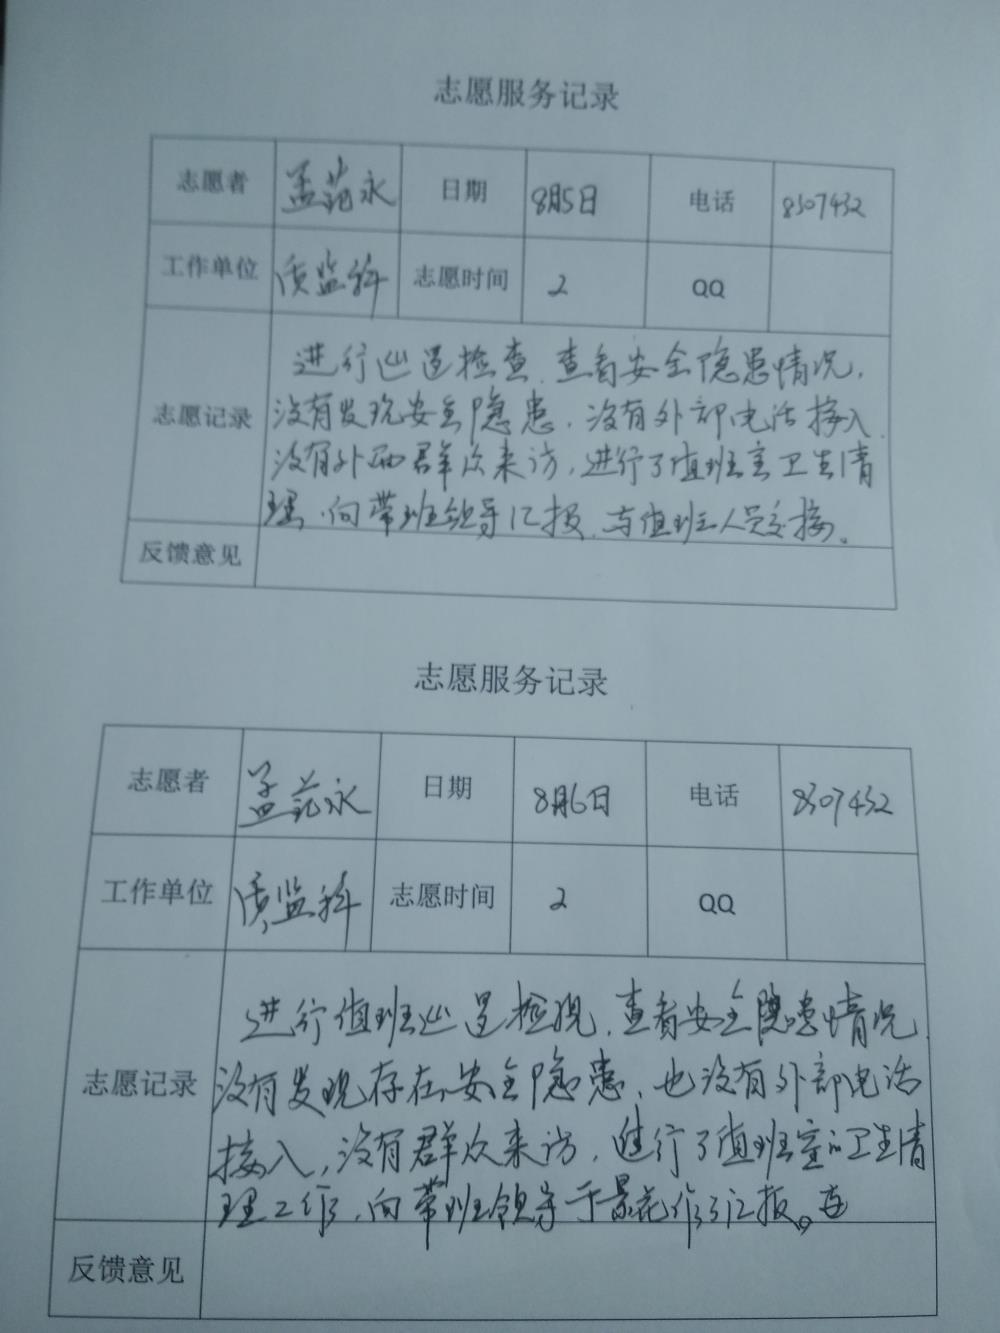 志愿服务记录
志愿者 孟范永 日期 8月5日 电话 8507432
工作单位 质监科 志愿时间 2 QQ
进行巡逻检查,查看安全隐患情况,
志愿记录 没有发现安全隐患,没有外部电话接入,
没有外面群众来访,进行了值班室卫生清
理,向带班领导汇报,与值班人员交接。
反馈意见
志愿服务记录
志愿者 孟范永 日期 8月6日 电话 8507432
工作单位 质监科 志愿时间 2 QQ
进行值班巡逻检视,查看安全隐患情况,
志愿记录 没有发现存在安全隐患,也没有外部电话
接入,没有群众来访,进行了值班室的卫生清
理工作,向带班领导于景花作了汇报。
反馈意见